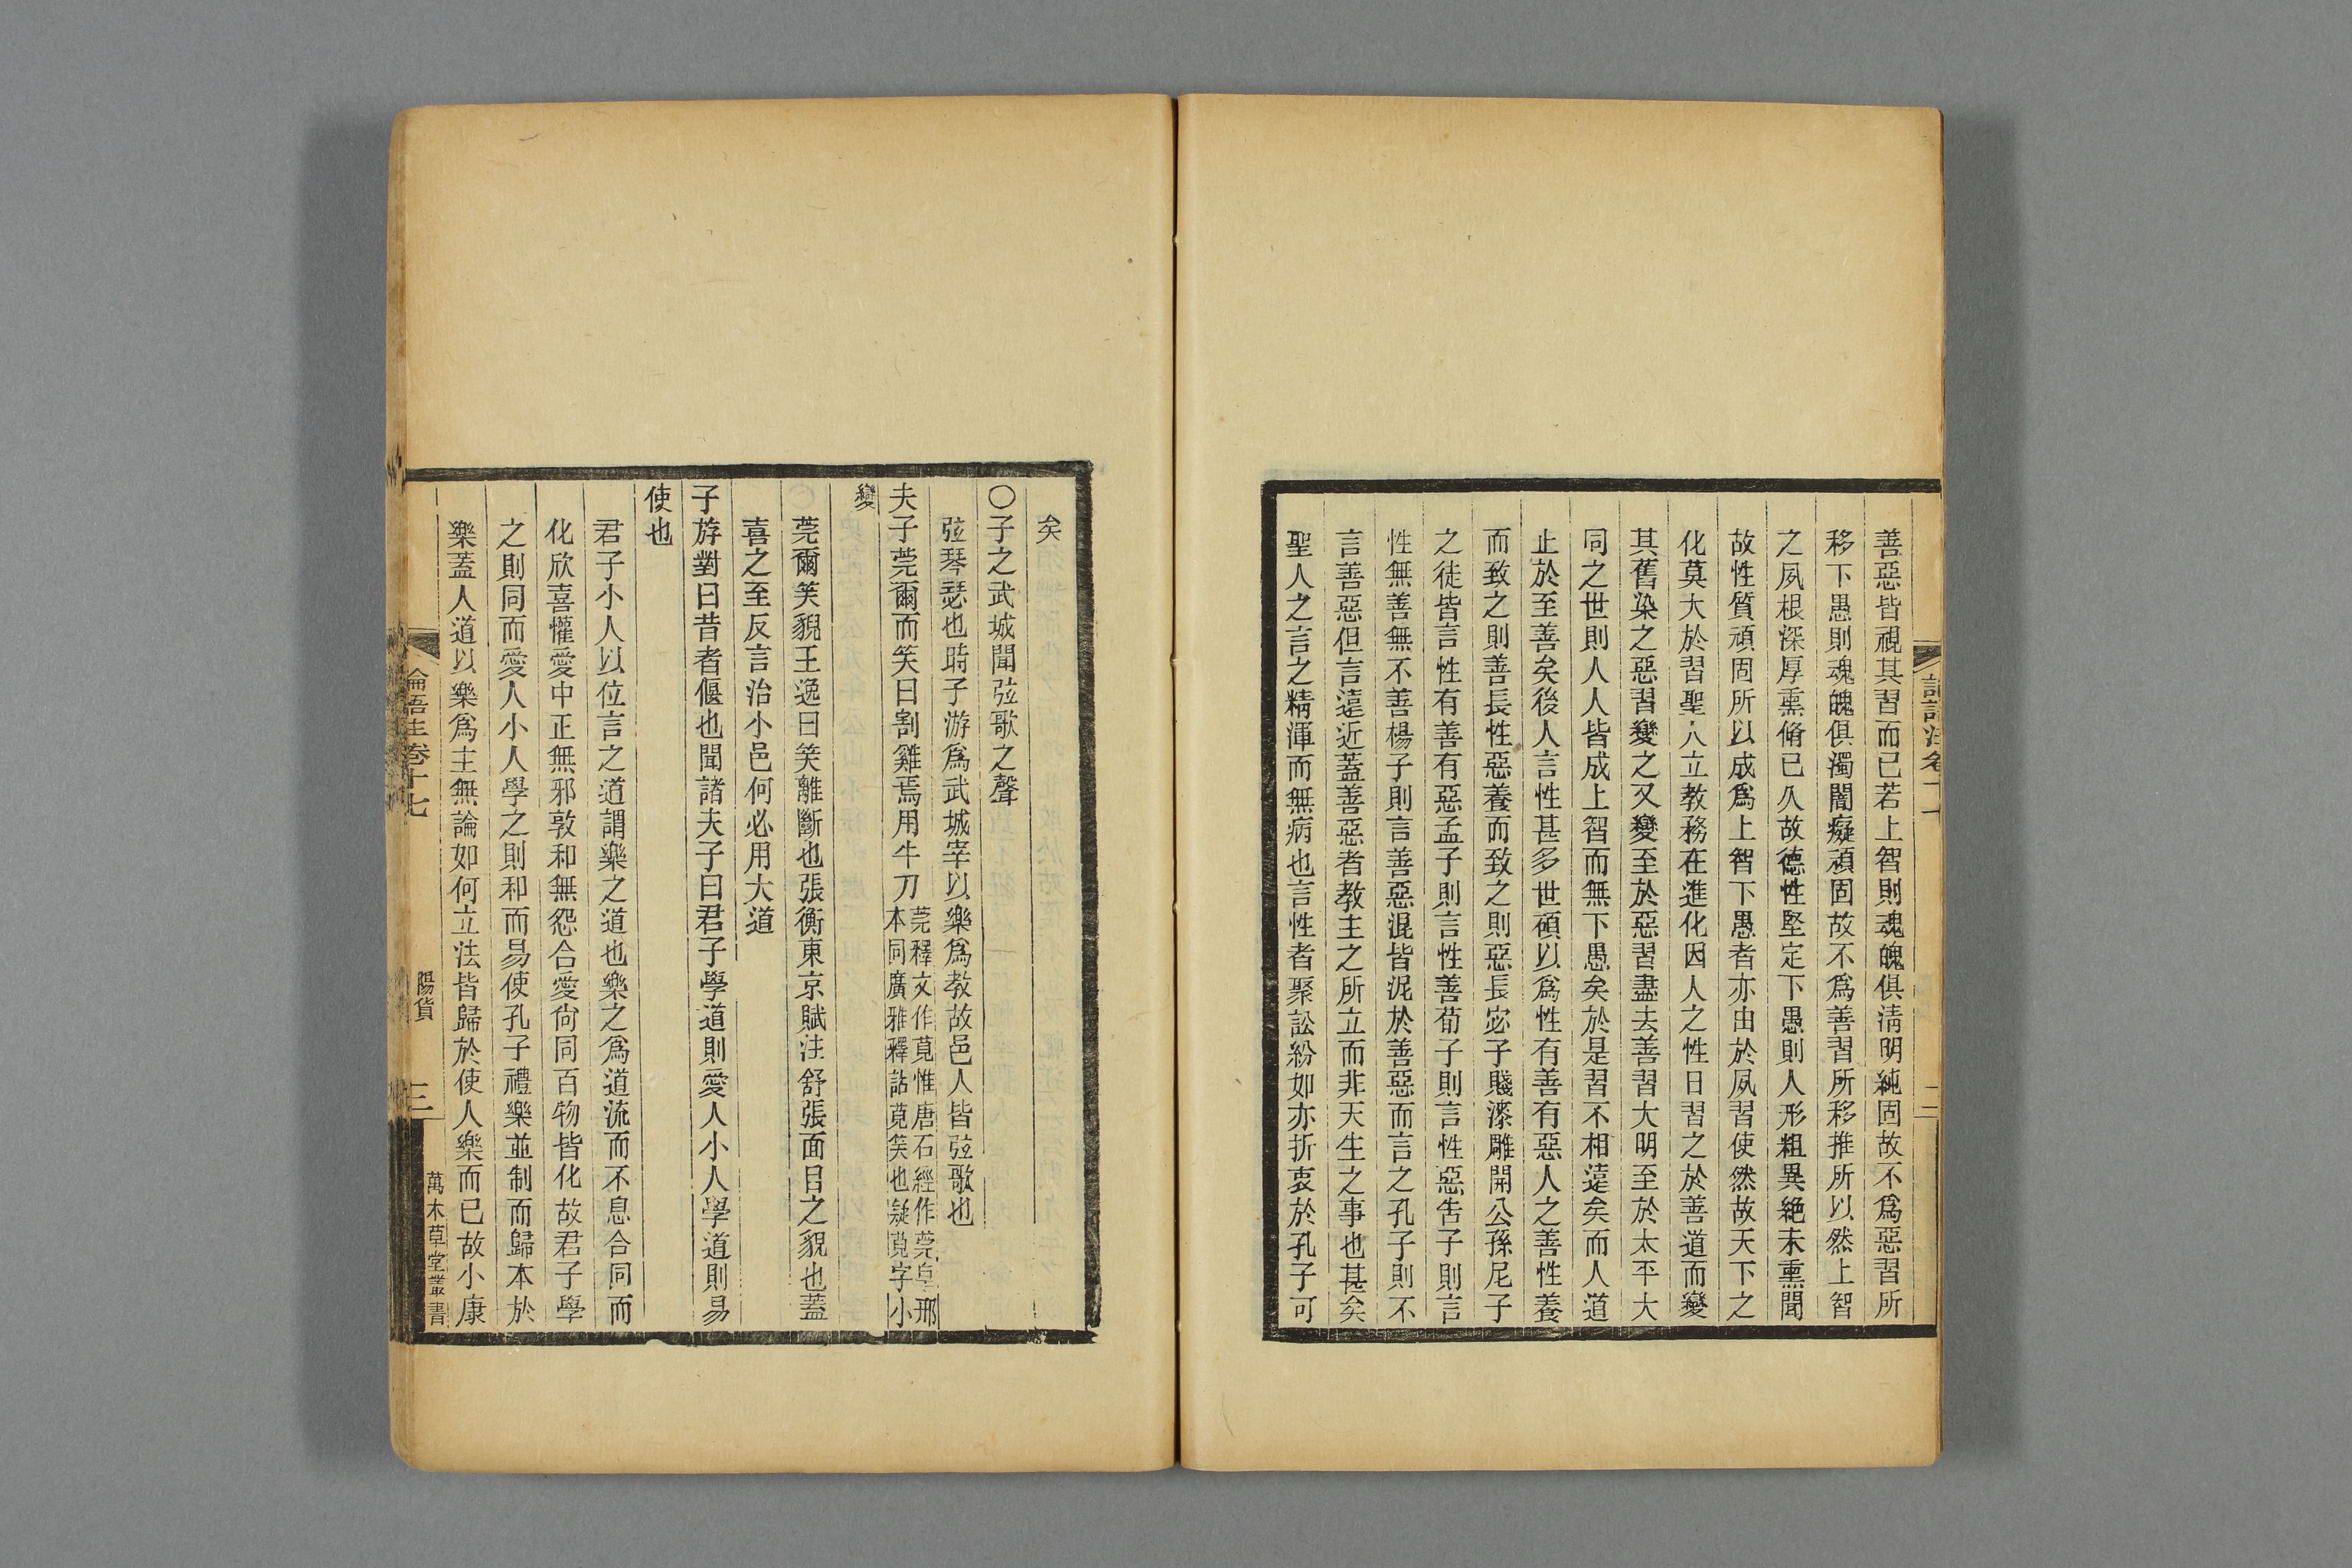 善惡皆視其習而已若上智則魂魄俱清明純固故不爲惡習所
移下愚則魂魄俱濁闇癡頑固故不爲善習所移推所以然上智
之夙根深厚熏脩已久故德性堅定下愚則人形粗異絶未熏聞
故性質頑固所以成爲上智下愚者亦由於夙習使然故天下之
化莫大於習聖人立教務在進化因人之性日習之於善道而變
其舊染之惡習變之又變至於惡習盡去善習大明至於太平大
同之世則人人皆成上智而無下愚矣於是習不相遠矣而人道
止於至善矣後人言性甚多世碩以爲性有善有惡人之善性養
而致之則善長性惡養而致之則惡長宓子賤漆雕開公孫尼子
之徒皆言性有善有惡孟子則言性善荀子則言性惡告子則言
性無善無不善楊子則言善惡混皆泥於善惡而言之孔子則不
言善惡但言遠近蓋善惡者教主之所立而非天生之事也甚矣
聖人之言之精渾而無病也言性者聚訟紛如亦折衷於孔子可
矣
○子之武城聞弦歌之聲
弦琴瑟也時子游爲武城宰以樂爲教故邑人皆弦歌也
夫子莞爾而笑曰割雞焉用牛刀莞釋文作莧惟唐石經作莞皇邢
本同廣雅釋詁莧笑也疑莧字小
變
莞爾笑貌王逸曰笑離斷也張衡東京賦注舒張面目之貌也蓋
喜之至反言治小邑何必用大道
子游對曰昔者偃也聞諸夫子曰君子學道則愛人小人學道則易
使也
君子小人以位言之道謂樂之道也樂之爲道流而不息合同而
化欣喜懽愛中正無邪敦和無怨合愛尙同百物皆化故君子學
之則同而愛人小人學之則和而易使孔子禮樂並制而歸本於
樂蓋人道以樂爲主無論如何立法皆歸於使人樂而已故小康
論語注卷十七
陽貨
三
萬木草堂叢書